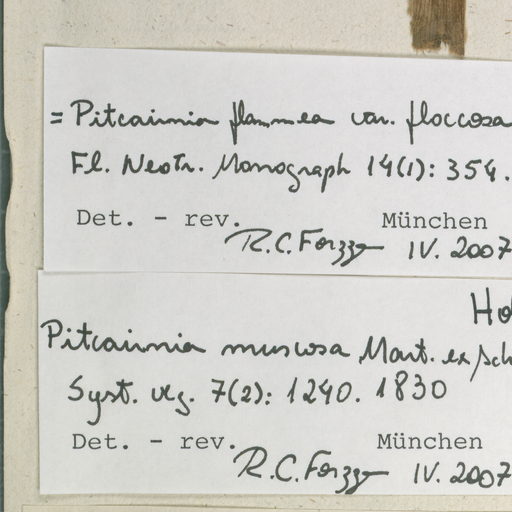 = Pitcairnia flammea var. floccosa
Fl. Neotr. Monograph 14(1): 354.
Det. - rev. München
R.C. Forzza IV. 2007
Hol
Pitcairnia muscosa Mart. ex Sch
Syst. veg. 7(2): 1240. 1830
Det. - rev. München
R.C. Forzza IV. 2007